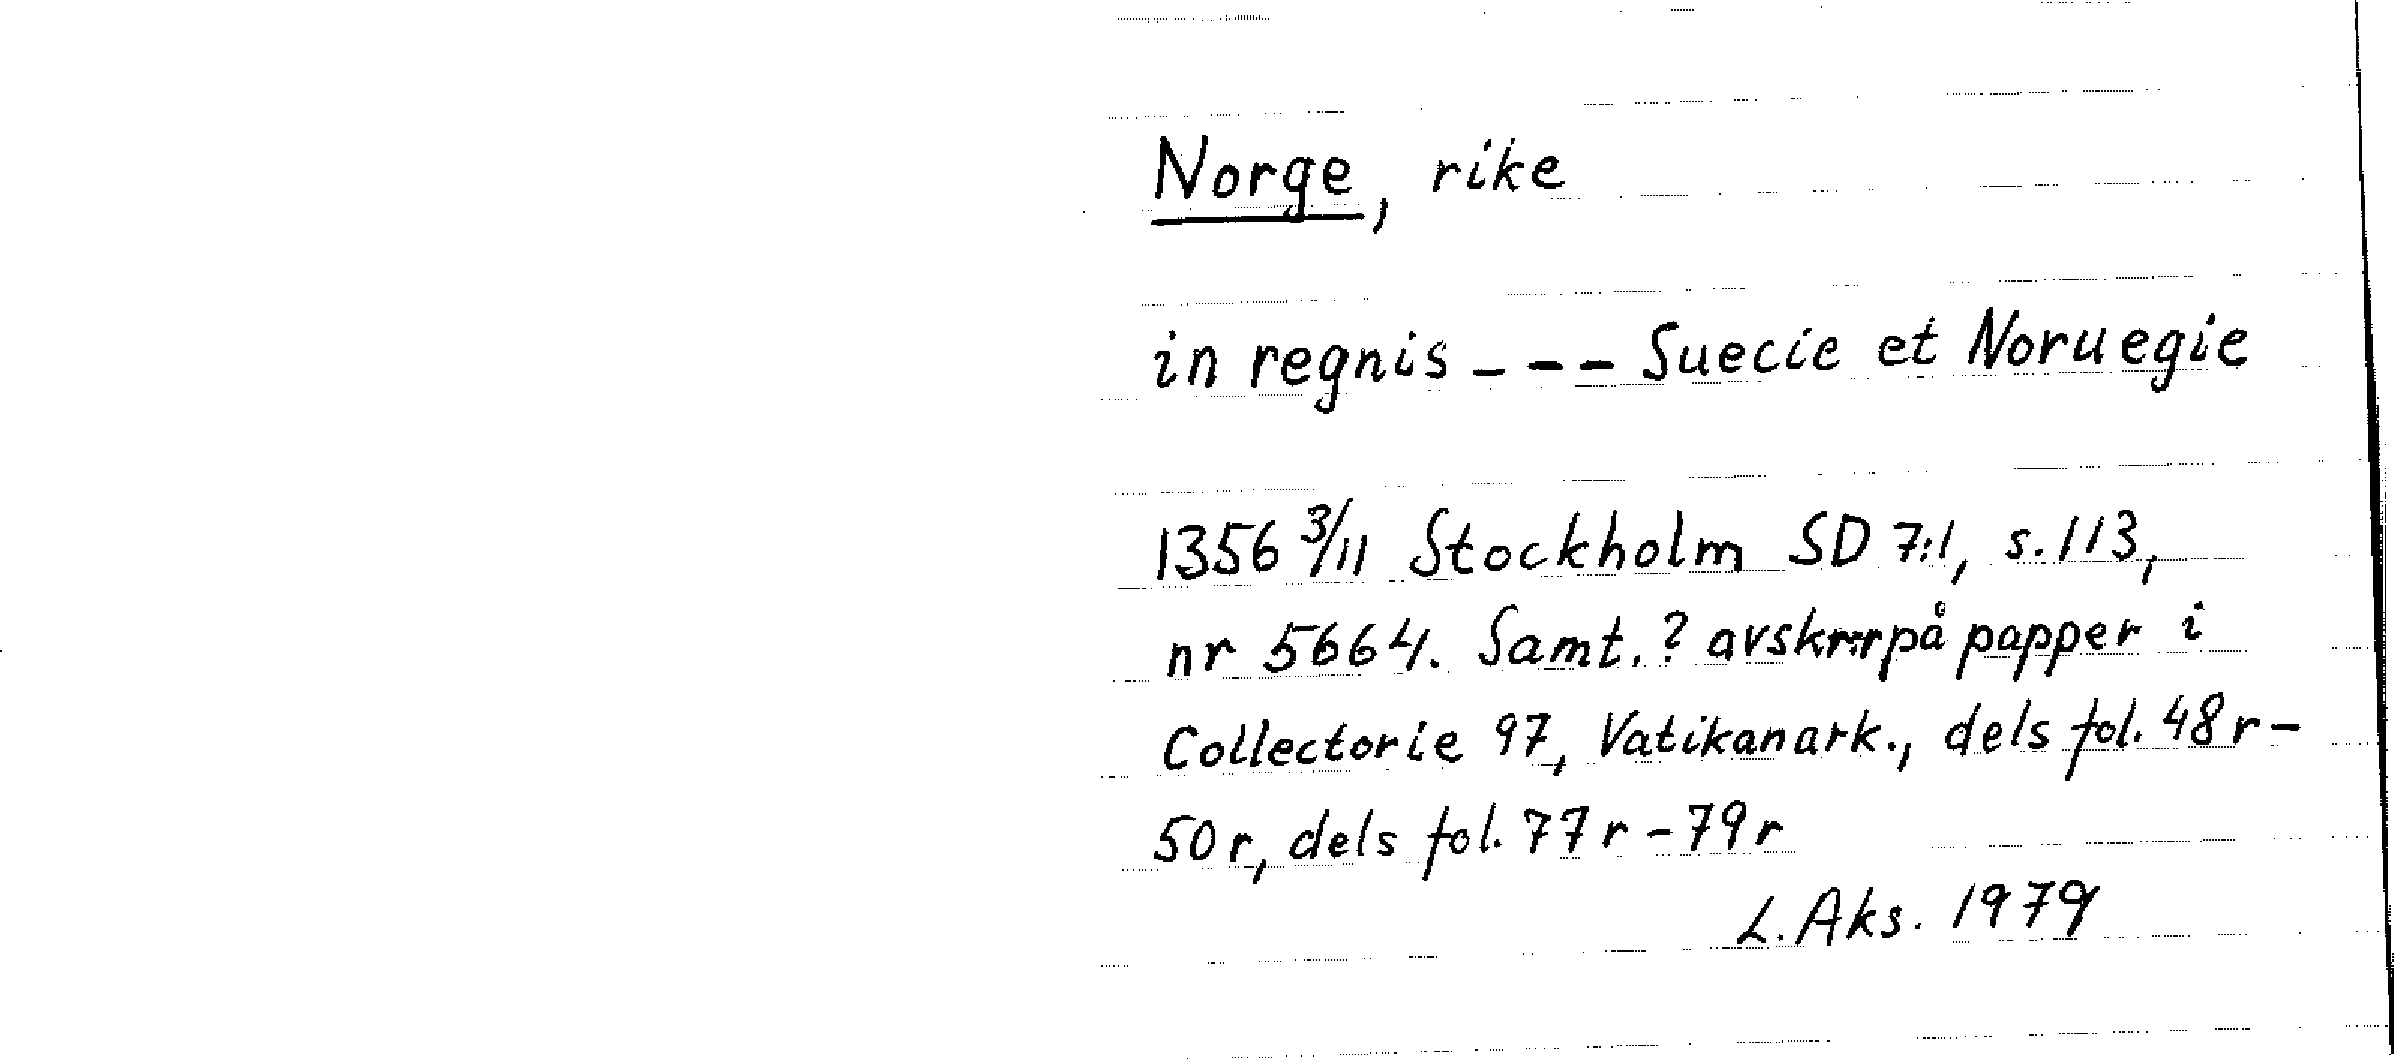 Norge, rike
in regnis --- Suecie et Noruegie
1356 3/11 Stockholm SD 7:1, s. 113,
nr 5664. Samt.? avskr:r på papper i
Collectorie 97, Vatikanark., dels fol. 48 r-
50 r, dels fol. 77 r - 79 r
L. Aks. 1979